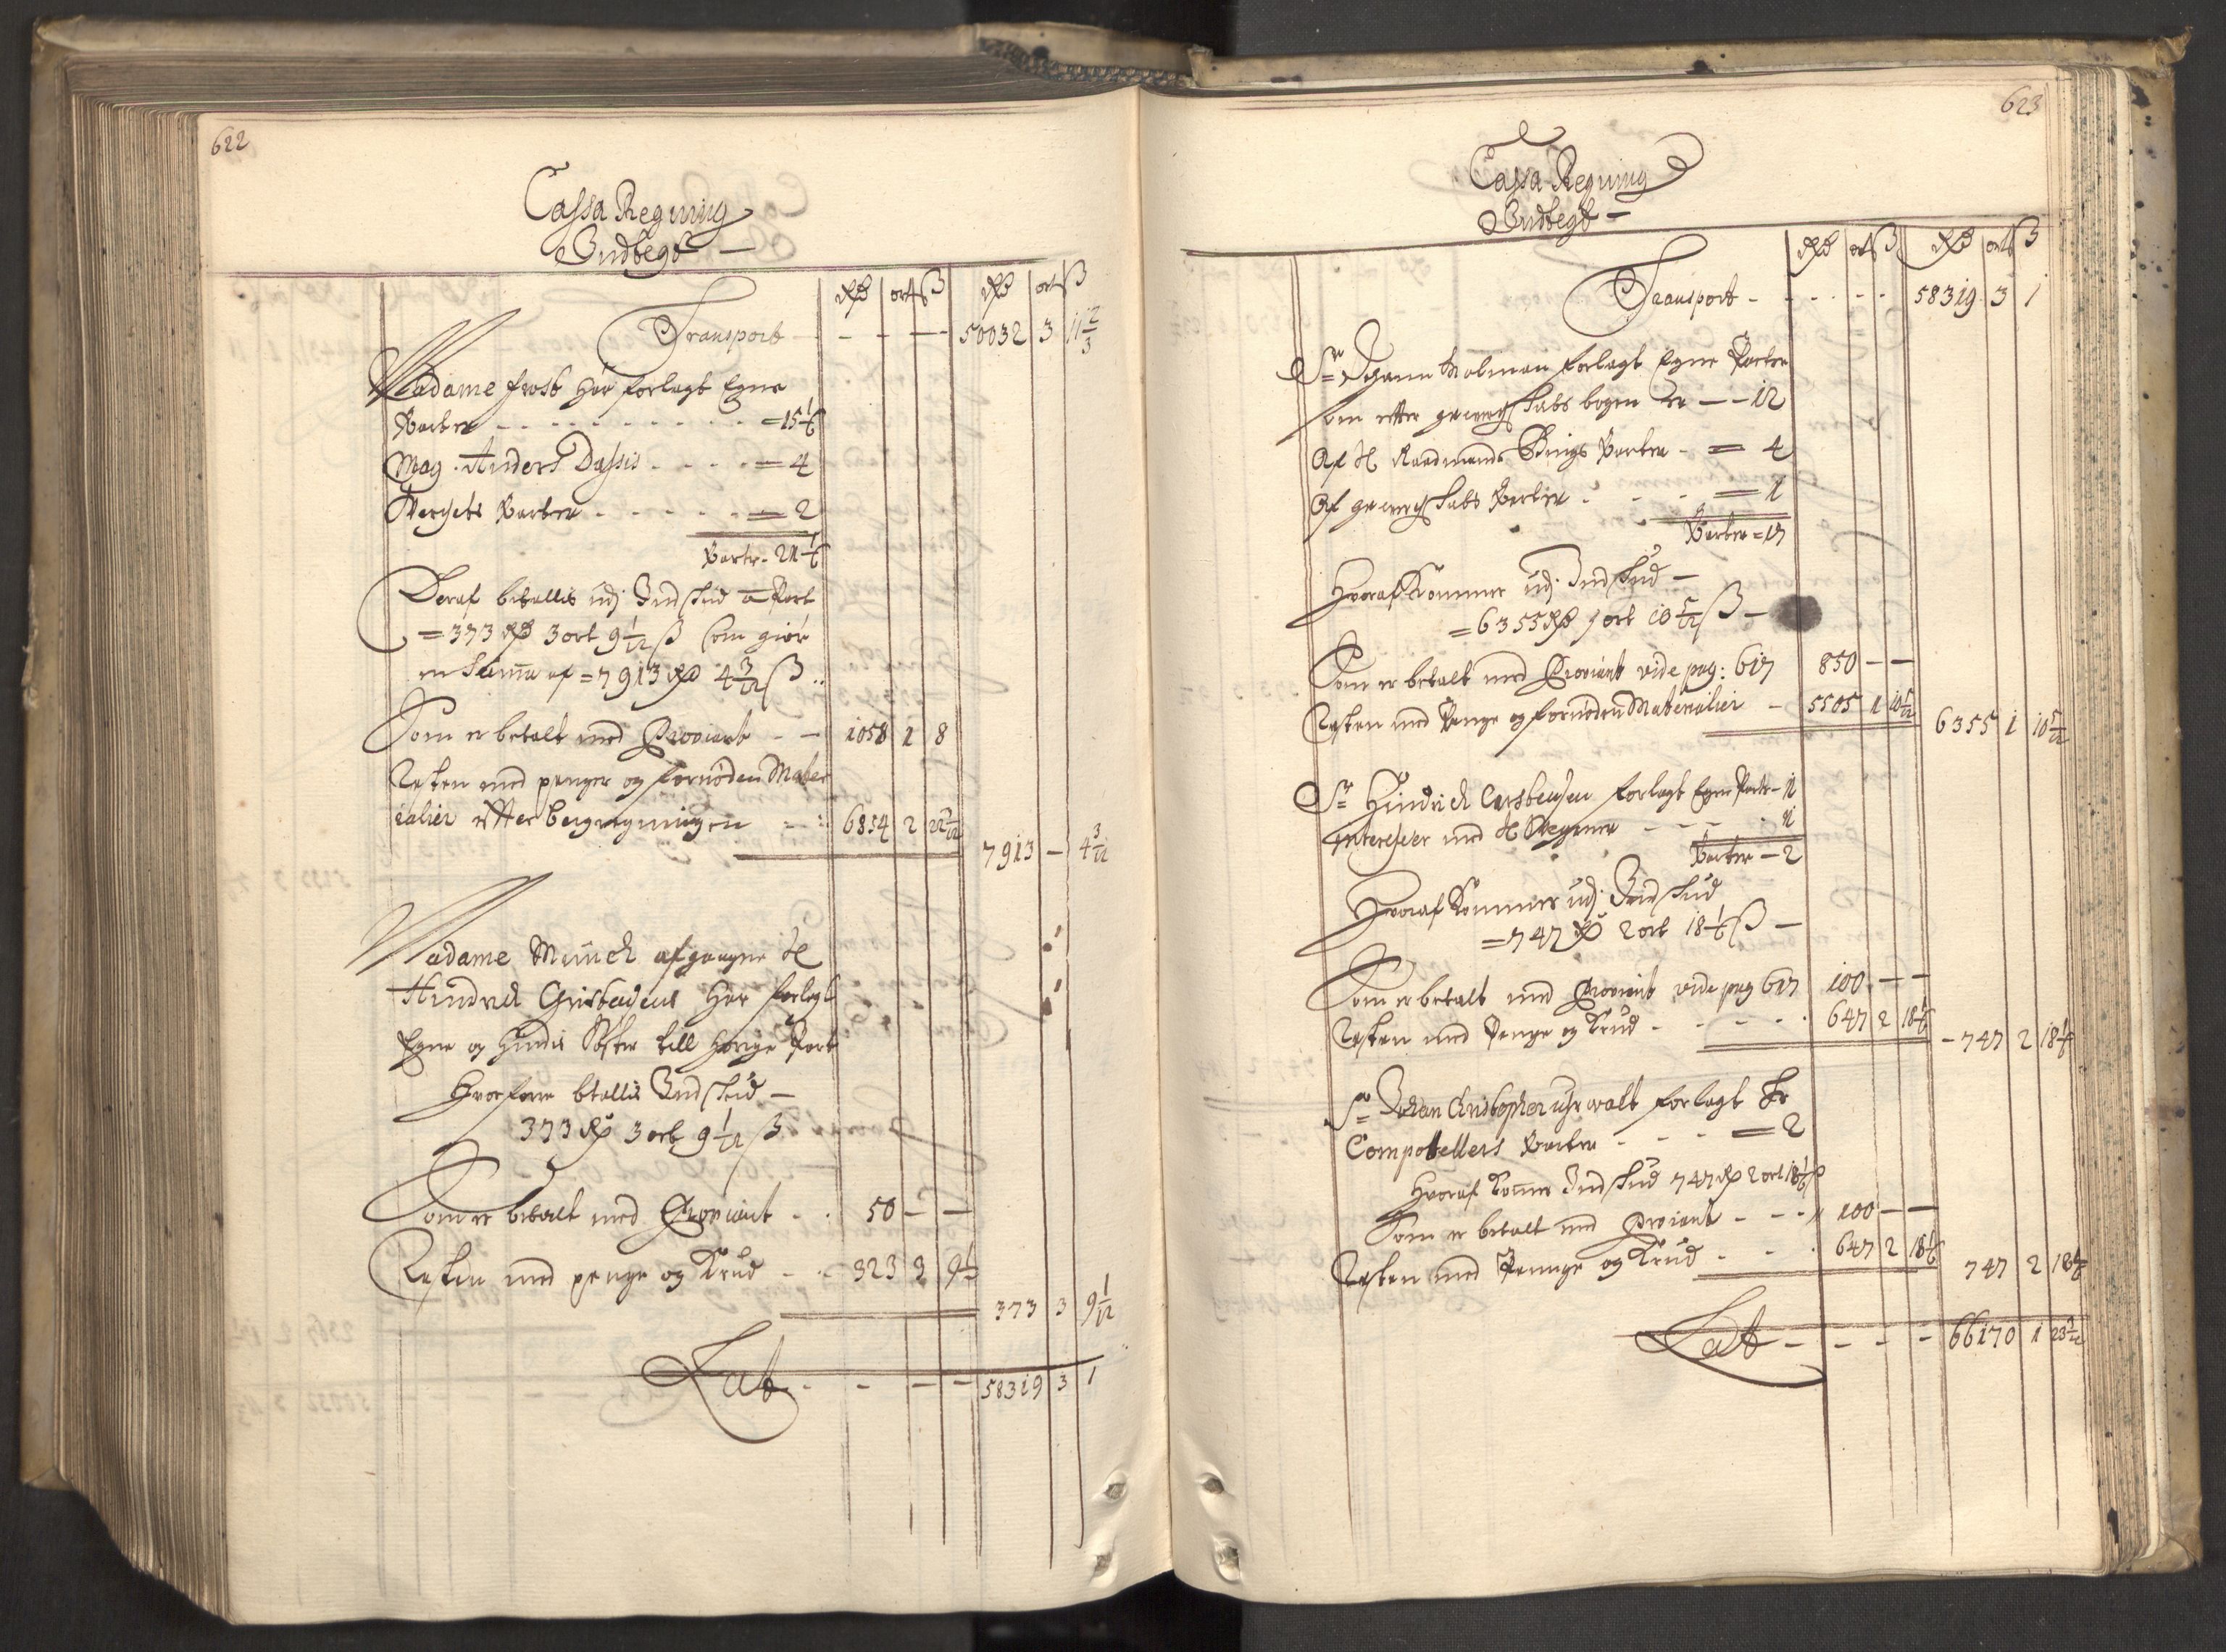 622
Cassa Regning
Indtegt —
Rdr ort ß Rdr ort ß
Transport - - - - 50032 3 11 2/3
Madame frost har forlagt Egne
Parter - - - - - = 15 1/6
Mag. Anders Dassis - - - = 4
Verchets Parter - - - - = 2
Parter - 21 1/6
Deraf betallis udj Indskud a Part
= 373 Rdr 3 ort 9 1/12 ß som giör
en Suma af = 7913 Rdr 4 3/12 ß
Som er betalt med Proviant - - 1058 1 8
Resten med penger og fornöden Mater
ialier efter bergregningen - - 6854 2 20 3/12
7913 - 4 3/12
Madame Munch afgangne H
Hindrich Christensens har forlagt
Egne og hindis Söster till hörige Part
Hvorforre btallis Indskud —
373 Rdr 3 ort 9 1/12 ß
Som er betalt med Proviant - - 50 — —
Resten med penge og Krud - - 323 3 9 1/12
373 3 9 1/12
Lat - - - - 58319 3 1
623
Cassa Regning
Indtegt —
Rdr ort ß Rdr ort ß
Transport - - - - - 58319 3 1
Sr Johann Molman forlagt Egne Parter
som efter gewerckskabs bogen er - - 12
Af H Raadmands Brugs Parter - = 4
Af gewerckskabs Parter - - - = 1
Parter = 17
Hvoraf Kommer udj Indskud —
= 6355 Rdr 1 ort 10 5/12 ß —
Som er betalt med Proviant vide pag: 617 850 — —
Resten med Penge og fornöden Materialier - 5505 1 10 5/12
6355 1 10 5/12
Sr Hindrich Carstensen forlagt Egen Part - 1
Interesseer med H - - - - 1
Parter — 2
Hvoraf Kommer udj Indskud
= 747 Rdr 2 ort 18 1/6 ß —
Som er betalt med Proviant vide pag 617 100 — —
Resten med Penge og Krud - - - - 647 2 18 1/6
- 747 2 18 1/6
Sr Johan Christopher uhrwalt forlagt Hr
Compotellers Parter - - - = 2
Hvoraf komer Indskud 747 Rdr 2 ort 18 1/6 ß
Som er betalt med Proviant - - - 100 — —
Resten med Pennge og Krud - - - 647 2 18 1/6
747 2 18 1/6
Lat - - - - 66170 1 23 9/12